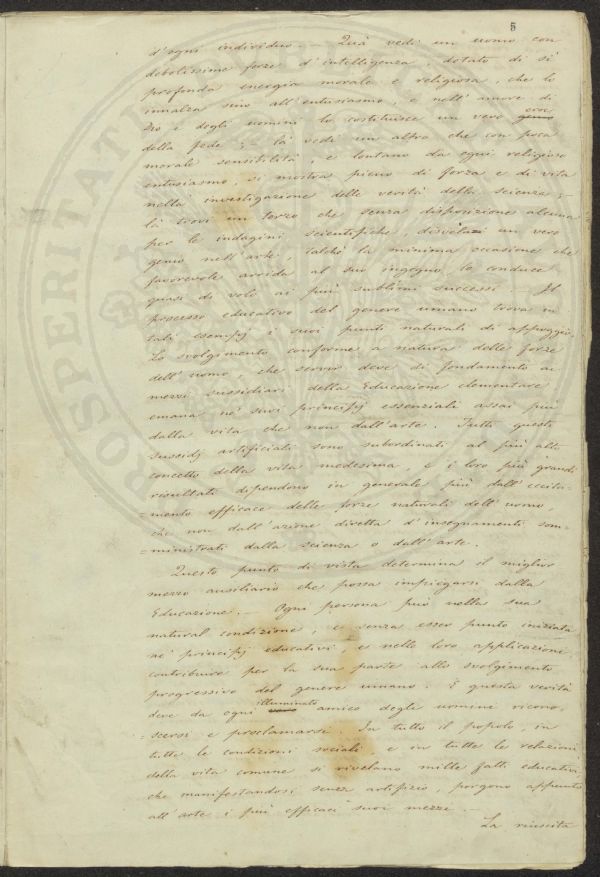 5
d'ogni individuo. — Quà vedi un uomo con
debolissime forze d'intelligenza, dotato di sì
profonda energia morale e religiosa, che lo
innalza sino all'entusiasmo, e nell'amore di
Dio e degli uomini lo costituisce un vero eroe
della fede; — là vedi un altro che con poca
morale sensibilità, e lontano da ogni religioso
entusiasmo, si mostra pieno di forza e di vita
nella investigazione delle verità della scienza; —
là trovi un terzo che senza disposizione alcuna
per le indagini scientifiche, disvela un vero
genio nell'arte, talchè la minima occasione che
favorevole arrida al suo ingegno, lo conduce
quasi di volo ai più sublimi successi. — Il
processo educativo del genere umano trova in
tali esempj i suoi punti naturali di appoggio.
Lo svolgimento conforme a natura delle forze
dell'uomo, che servir deve di fondamento ai
mezzi sussidiari della Educazione elementare
emana ne' suoi principj essenziali assai più
dalla vita che non dall'arte. Tutti questi
sussidj artificiali sono subordinati al più alto
concetto della vita medesima, e i loro più grandi
risultati dipendono in generale più dall'eccita-
=mento efficace delle forze naturali dell'uomo,
che non dall'azione diretta d'insegnamenti som=
=ministrati dalla scienza o dall'arte.
Questo punto di vista determina il miglior
mezzo ausiliario che possa impiegarsi dalla
Educazione. — Ogni persona può nella sua
natural condizione, e senza esser punto iniziata
ai principj educativi, e nella loro applicazione
contribuire per la sua parte allo svolgimento
progressivo del genere umano. È questa verità
deve da ogni illuminato amico degli uomini ricono-
scersi e proclamarsi. In tutto il popolo, in
tutte le condizioni sociali e in tutte le relazioni
della vita comune si rivelano mille fatti educativi,
che manifestandosi senza artifizio, porgono appunto
all'arte i più efficaci suoi mezzi. —
La riuscita